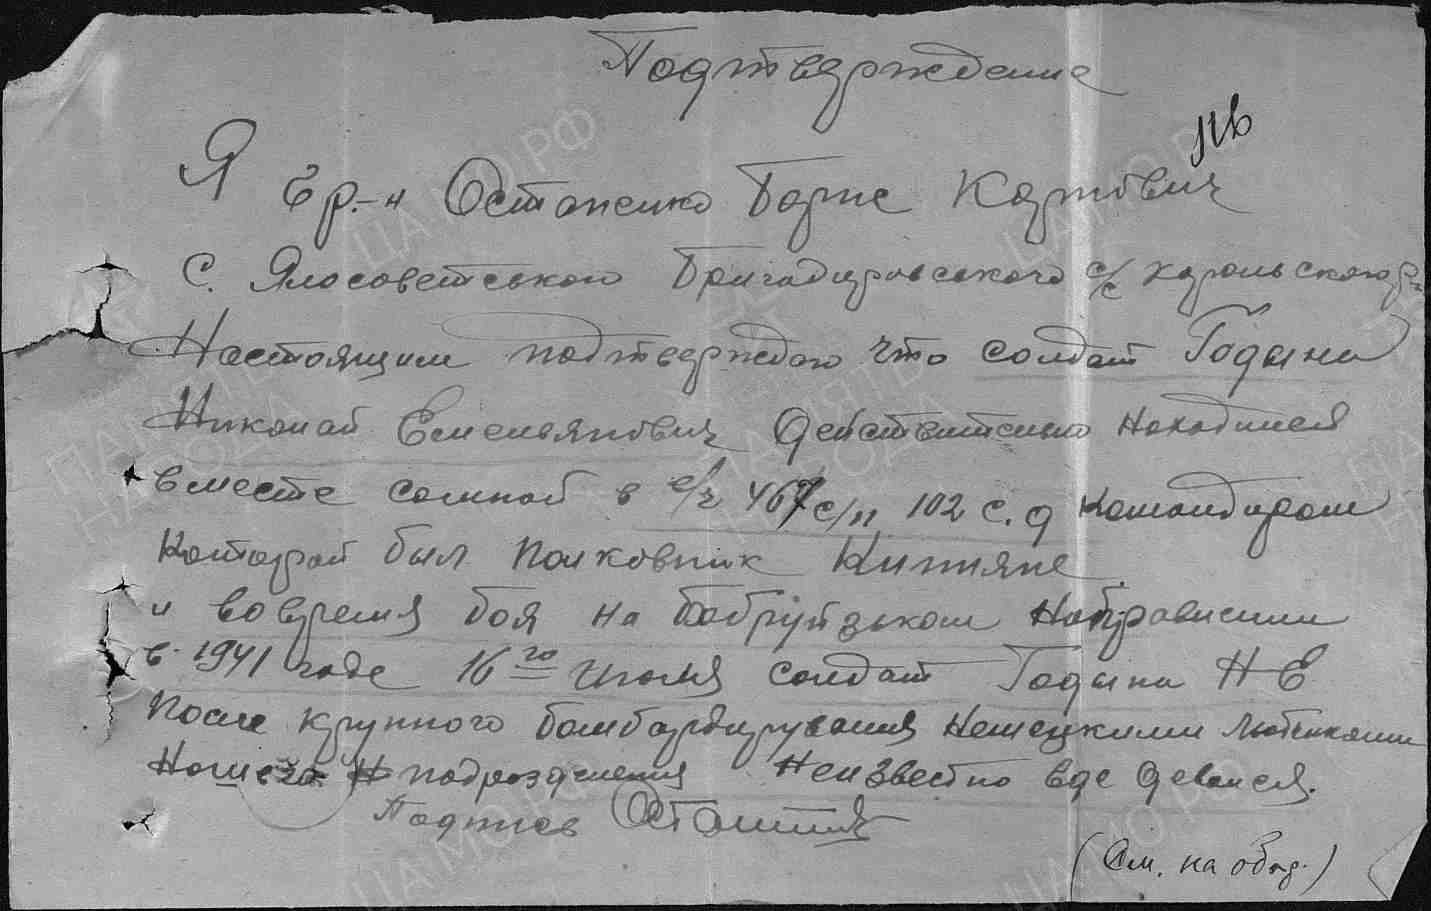 Подтверждение
116
Я Гр.-н Остапенко Борис Карпович
С. Ялосоветською Бригадировського с/с Хорольского р-
Настоящим подтверждаю что солдат Годына
Николай Емельянович действительно находился
вместе сомной в в/ч 467 с/п 102 с.д Командиром
Которой был полковник
и вовремя боя на Бобруйзьком Направлении
в 1941 году 16го июля солдат Годына Н Е
После крупного бомбардирувания Немецкими
Нашего подрозделения Неизвестно вде девался.
Подпись
(См. на обор.)